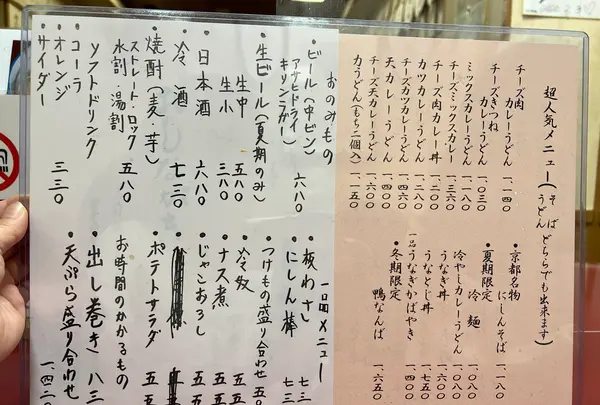 超人気メニュー(そば うどん どちらでも出来ます)
チーズ肉カレーうどん 一、一四〇
チーズきつねカレーうどん 一、〇三〇
ミックスカレーうどん 一、一八〇
チーズミックスカレー 一、三六〇
チーズ肉カレー丼 一、二〇〇
カツカレーうどん 一、二八〇
チーズカツカレーうどん 一、四六〇
天カレーうどん 一、四〇〇
チーズ天カレーうどん 一、六〇〇
力うどん(もち二個入) 一、一五〇
・京都名物
にしんそば 一、一八〇
・夏期限定
冷麺 一、〇八〇
冷やしカレーうどん 一、〇八〇
うなぎ丼 一、四〇〇
うなとじ丼 一、七五〇
一品うなぎかばやき 一、四〇〇
・冬期限定
鴨なんば 一、六五〇
おのみもの
・ビール(中ビン)
アサヒドライ
キリンラガー 六八〇
・生ビール(夏期のみ)
生中 五八〇
生小 三八〇
・日本酒 六八〇
・冷酒 七三〇
・焼酎(麦・芋)
ストレート・ロック
水割・湯割 五八〇
ソフトドリンク
・コーラ
・オレンジ
・サイダー 三三〇
一品メニュー
・板わさ 七三
・にしん棒 七三
・つけもの盛り合わせ 五〇
・冷奴 五五
・ナス煮 五五
・じゃこおろし 五五
・ポテトサラダ 五五
お時間のかかるもの
・出し巻き 八三
・天ぷら盛り合わせ 一、四三〇